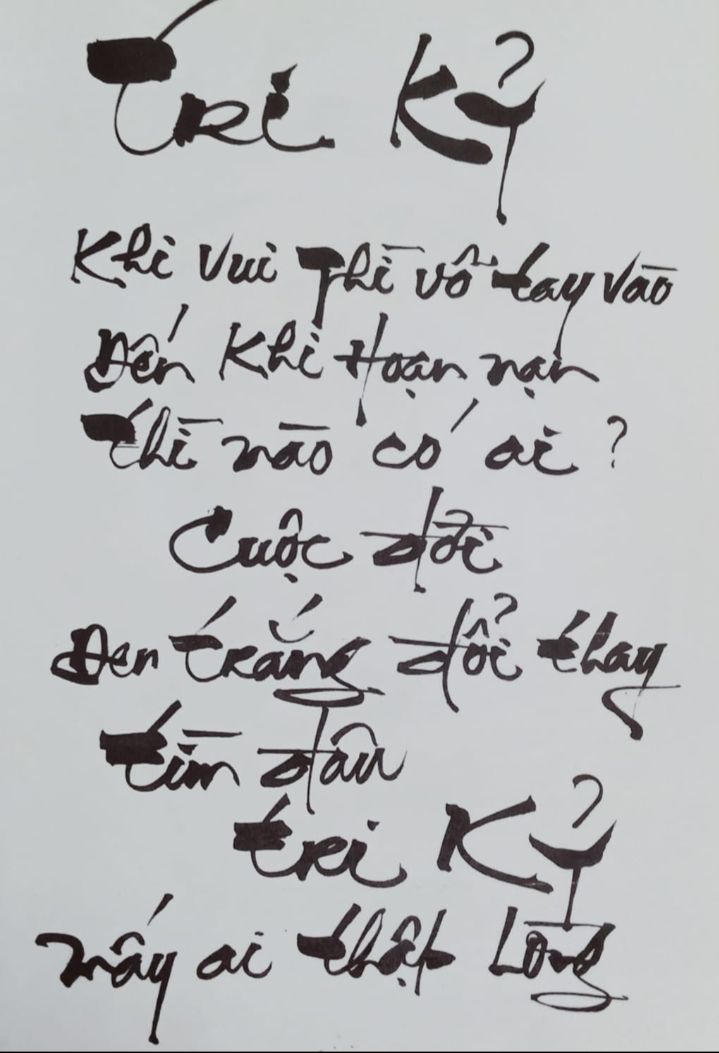 Tri Kỷ
Khi vui thì vỗ tay vào
Đến khi hoạn nạn
thì nào có ai?
Cuộc đời
Đen trắng đổi thay
tìm đâu
tri kỷ
mấy ai thật lòng